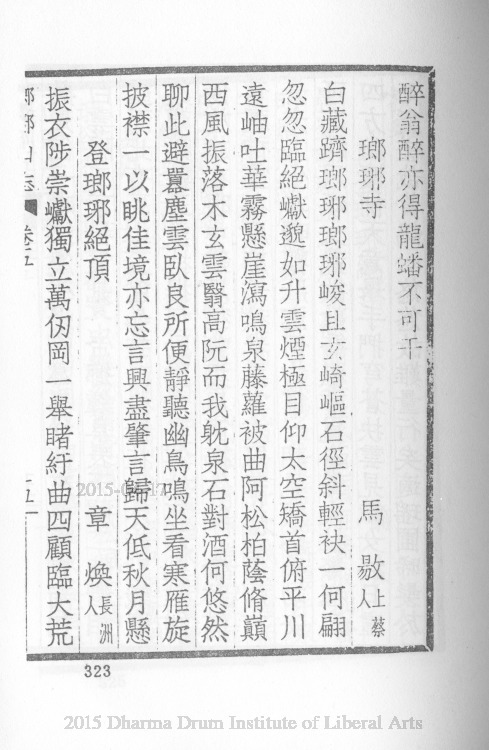 醉翁醉亦得龍蟠不可干
瑯琊寺 馬敭上蔡人
白藏躋瑯琊瑯琊峻且玄崎嶇石徑斜輕袂一何翩
忽忽臨絕巘邈如升雲煙極目仰太空矯首俯平川
遠岫吐華霧懸崖瀉鳴泉藤蘿被曲阿松柏蔭脩巔
西風振落木玄雲翳高阮而我躭泉石對酒何悠然
聊此避囂塵雲臥良所便靜聽幽鳥鳴坐看寒雁旋
披襟一以眺佳境亦忘言興盡肇言歸天低秋月懸
登瑯琊絕頂 章煥長洲人
振衣陟崇巘獨立萬仞岡一舉睹紆曲四顧臨大荒
瑯琊山志 卷五 五一
323
2015 Dharma Drum Institute of Liberal Arts